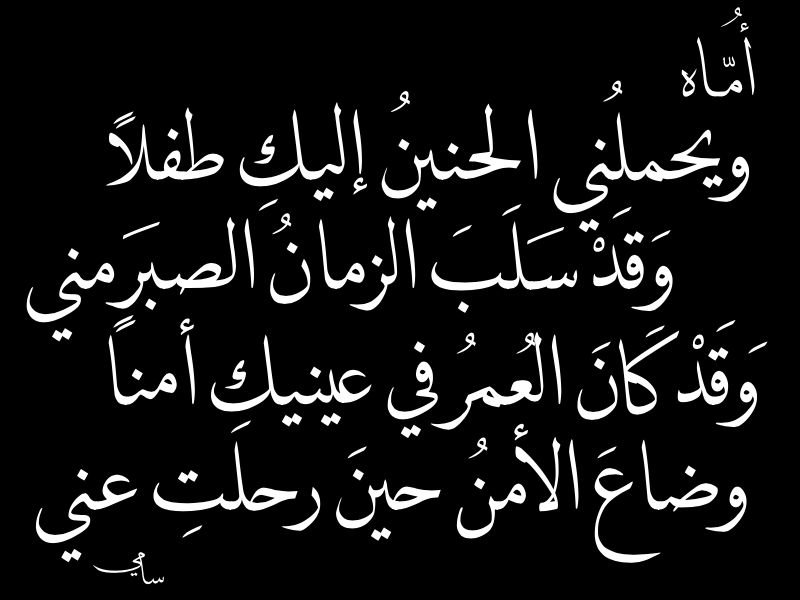 أُمّاه
ويحملُني الحنينُ إليكِ طفلاً
وَقَدْ سَلَبَ الزمانُ الصبَرَ مني
وَقَدْ كَانَ العُمرُ في عينيكِ أمناً
وضاعَ الأمنُ حينَ رحلَتِ عني
سامي